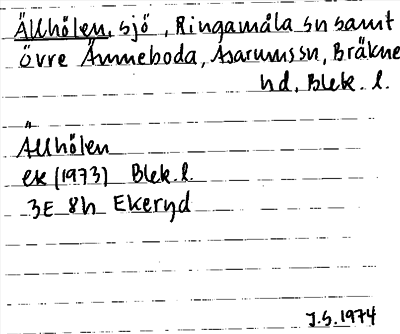 Ällhölen, sjö, Ringamåla sn samt
övre Ämneboda, Asarums sn, Bräkne
hd, Blek. l.
Ällhölen
ek (1973) Blek. l.
3E 8h Ekeryd
J.S. 1974